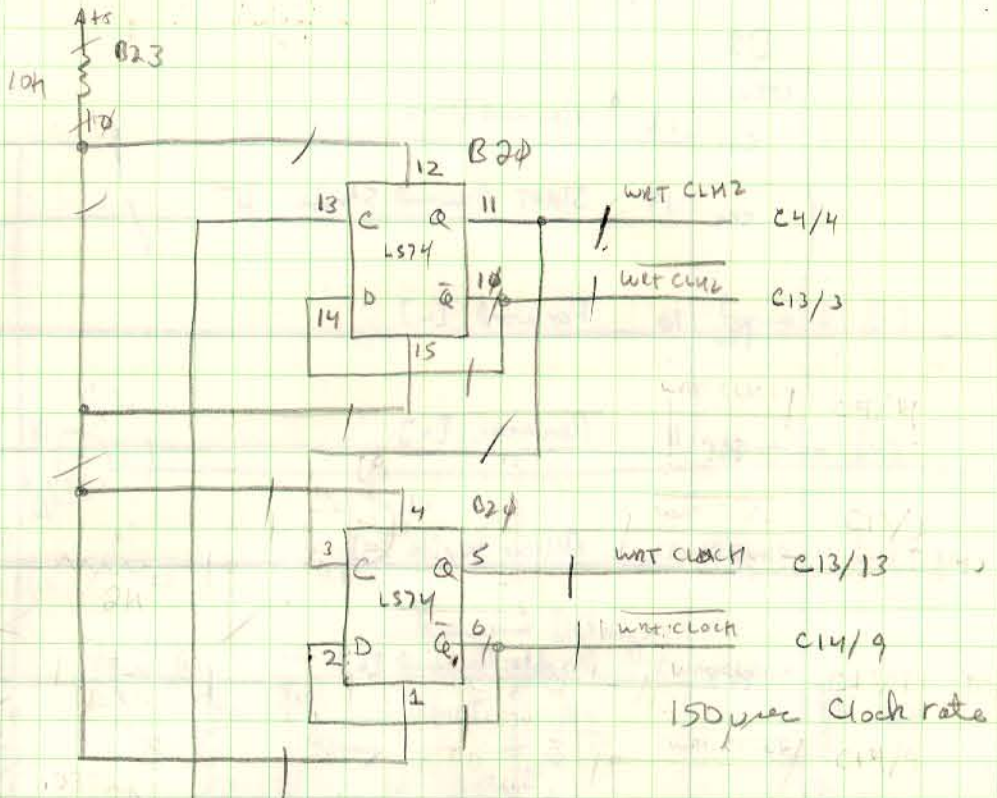 +5
B23
10K
10
12
B20
13
C
Q
11
WRT CLK2
C4/4
LS74
14
D
Q̅
10
WRT CLK2
C13/3
15
4
B20
3
C
Q
5
WRT CLOCK
C13/13
LS74
2
D
Q̅
6
WRT CLOCK
C14/9
1
150 µsec Clock rate